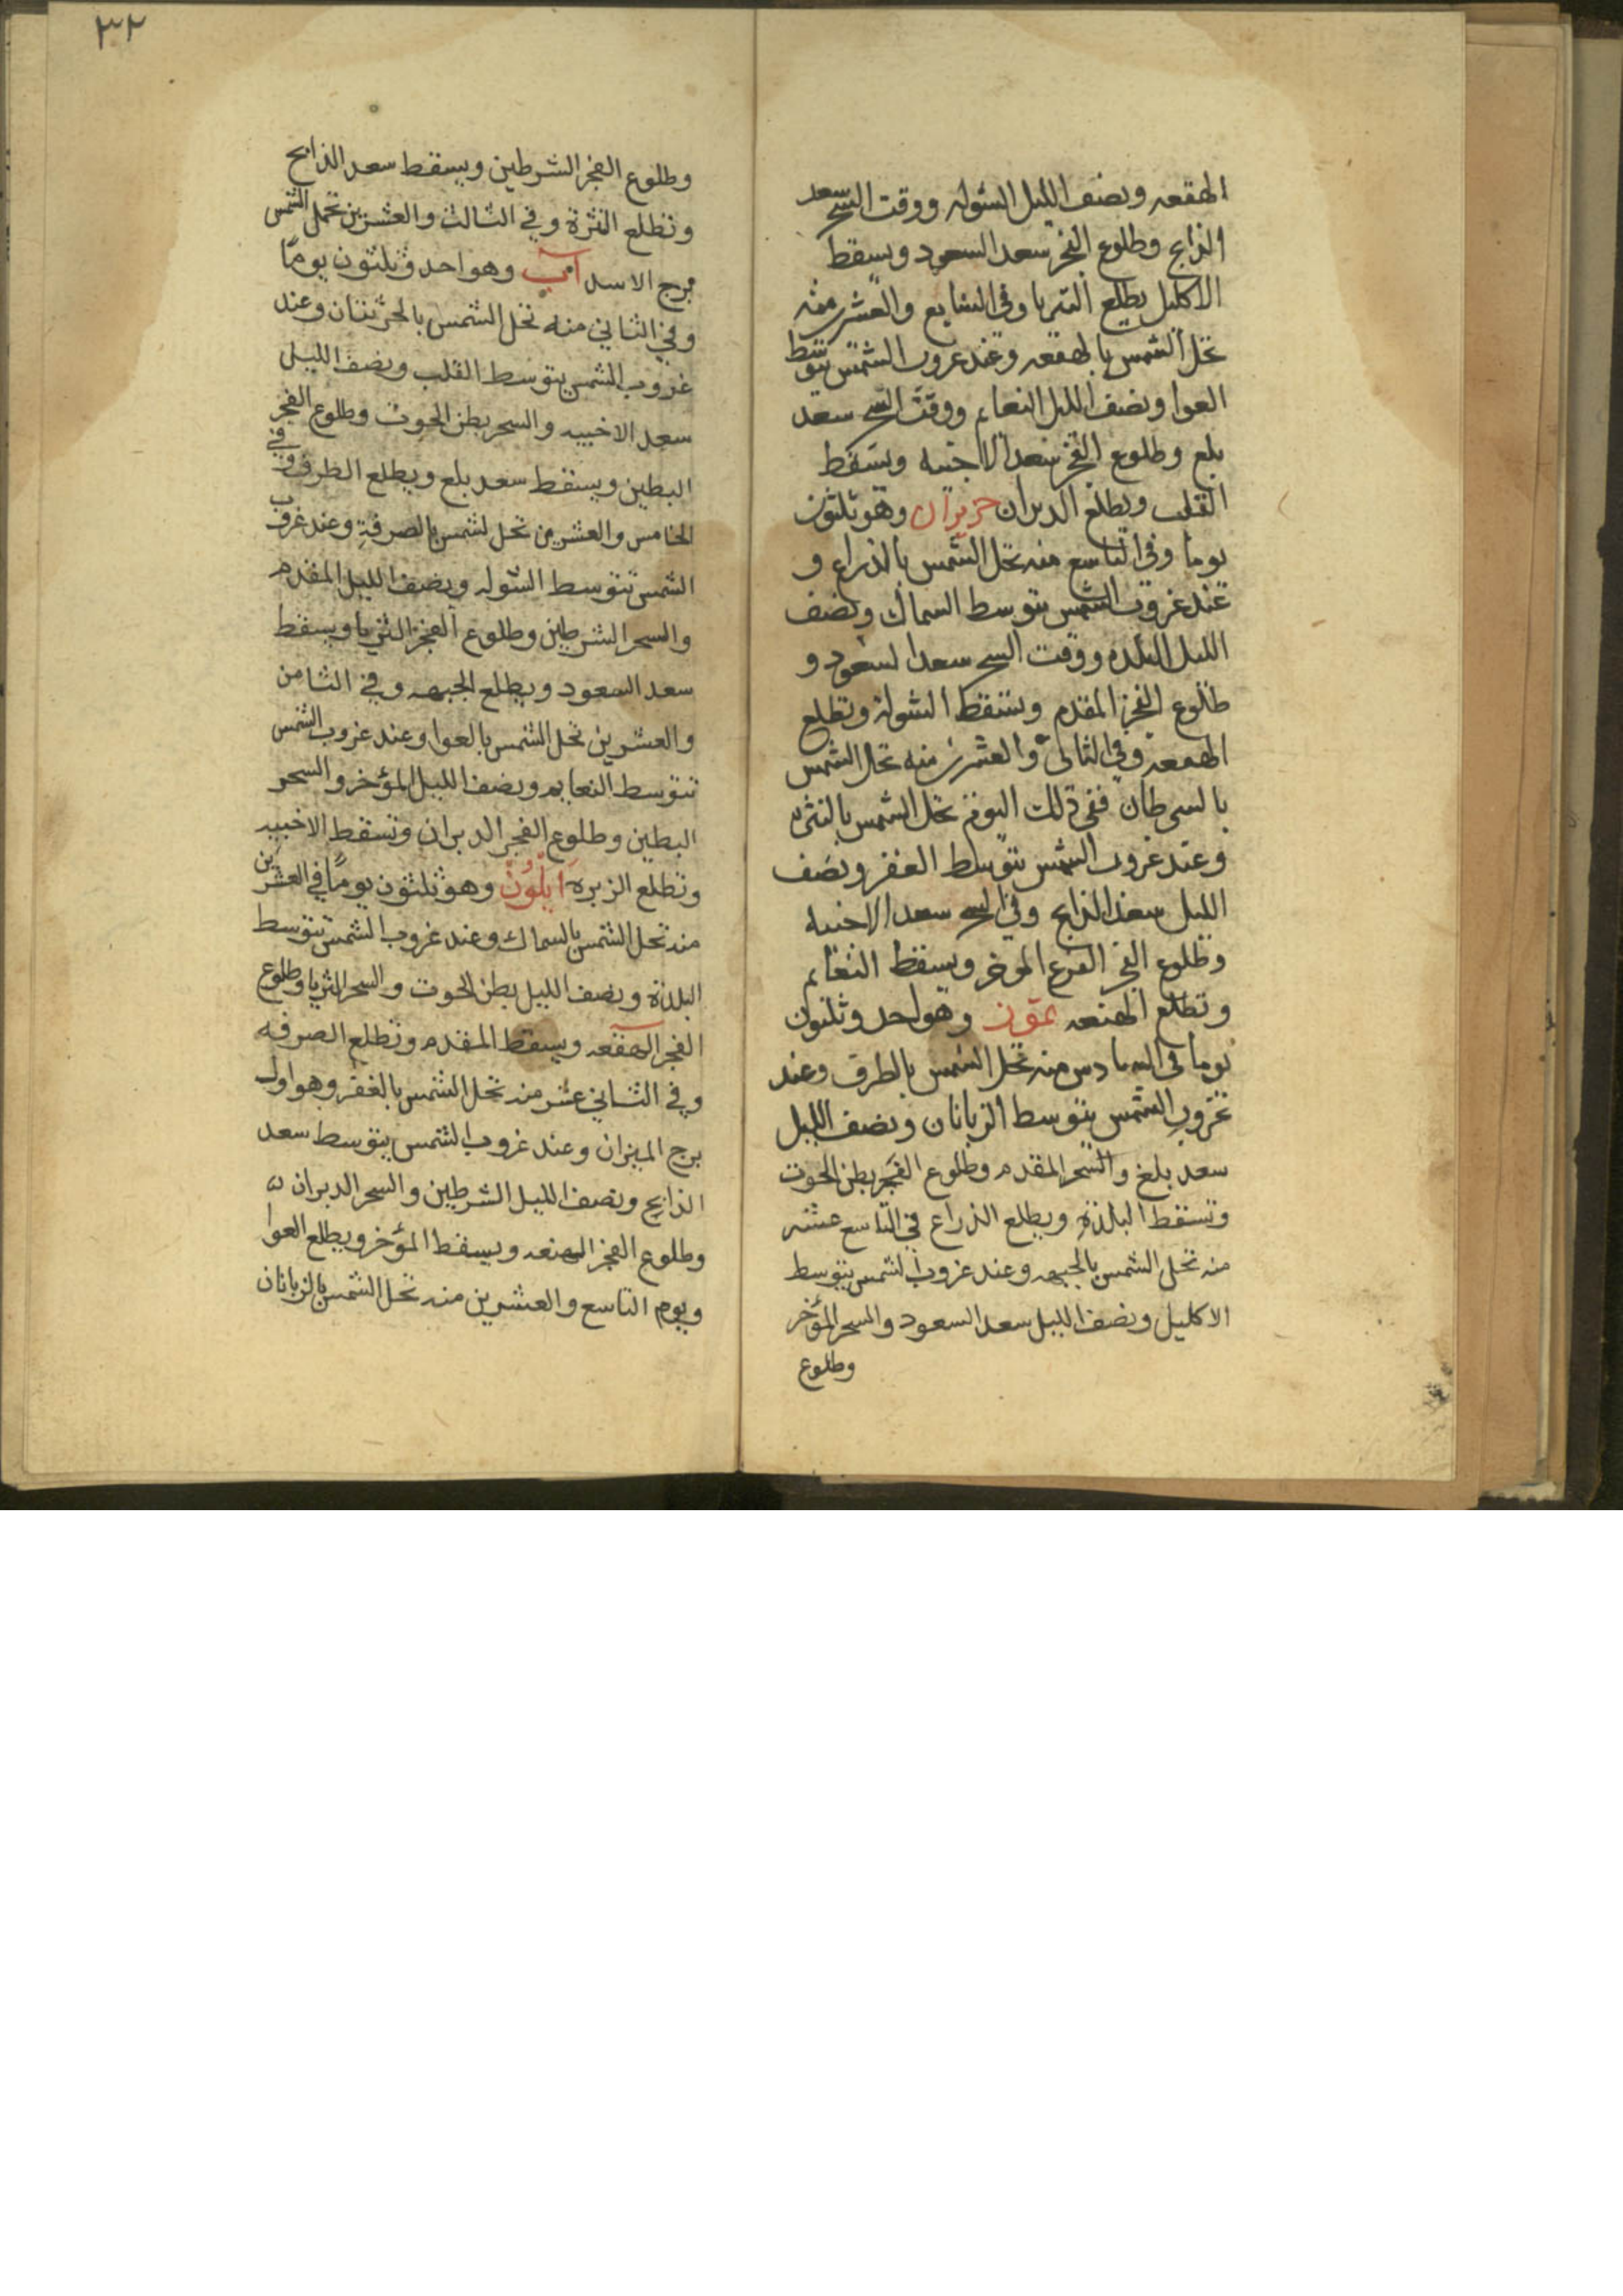 الهقعه ونصف الليل الشوله ووقت السحر سعد
الذابح وطلوع الفجر سعد السعود ويسقط
الاكليل يطلع الثريا وفي السابع والعشر منه
تحل الشمس بالهقعه وعند غروب الشمس يتوسط
العوا ونصف الليل النعايم ووقت السحر سعد
بلع وطلوع الفجر سعد الاخبيه ويسقط
القلب ويطلع الدبران حزيران وهو ثلثون
يوما وفي التاسع منه تحل الشمس بالذراع و
عند غروب الشمس يتوسط السماك ونصف
الليل البلده ووقت السحر سعد السعود و
طلوع الفجر المقدم ويسقط الشوله وتطلع
الهقعه وفي الثاني والعشرين منه تحل الشمس
بالسرطان ففي ذلك اليوم تحل الشمس بالنثره
وعند غروب الشمس يتوسط الغفر ونصف
الليل سعد الذابح وفي السحر سعد الاخبيه
وطلوع الفجر الفرع الموخر ويسقط النعايم
وتطلع الهنعه تموز وهو احد وثلثون
يوما في السادس منه تحل الشمس بالطرف وعند
غروب الشمس يتوسط الزبانان ونصف الليل
سعد بلع والسحر المقدم وطلوع الفجر بطن الحوت
وتسقط البلدة ويطلع الذراع في التاسع عشر
منه تحل الشمس بالجبهه وعند غروب الشمس يتوسط
الاكليل ونصف الليل سعد السعود والسحر المؤخر
وطلوع
٣٢
وطلوع الفجر الشرطين ويسقط سعد الذابح
وتطلع النثرة وفي الثالث والعشرين تحل الشمس
برج الاسد آب وهو احد وثلثون يومًا
وفي الثاني منه تحل الشمس بالخرتان وعند
غروب الشمس يتوسط القلب ونصف الليل
سعد الاخبيه والسحر بطن الحوت وطلوع الفجر
البطين ويسقط سعد بلع ويطلع الطرف وفي
الخامس والعشرين تحل لشمس بالصرفة وعند غروب
الشمس تتوسط الشوله ونصف الليل المقدم
والسحر الشرطين وطلوع الفجر الثريا ويسقط
سعد السعود ويطلع الجبهه وفي الثامن
والعشرين تحل الشمس بالعوا وعند غروب الشمس
تتوسط النعايم ونصف الليل المؤخر والسحر
البطين وطلوع الفجر الدبران وتسقط الاخبيه
وتطلع الزبره ايلون وهو ثلثون يومًا في العشرين
منه تحل الشمس بالسماك وعند غروب الشمس تتوسط
البلدة ونصف الليل بطن الحوت والسحر الثريا وطلوع
الفجر الهقعه ويسقط المقدم وتطلع الصرفه
وفي الثاني عشر منه تحل الشمس بالغفر وهو اول
برج الميزان وعند غروب الشمس يتوسط سعد
الذابح ونصف الليل الشرطين والسحر الدبران
وطلوع الفجر الهنعه ويسقط المؤخر ويطلع العوا
ويوم التاسع والعشرين منه تحل الشمس بالزبانان